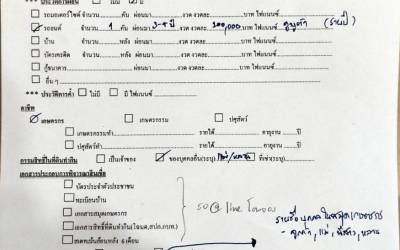 *** ประวัติการผ่อน ไม่มี มี
รถมอเตอร์ไซด์ จำนวน.......คัน ผ่อนมา.......งวด งวดละ.......บาท ไฟแนนซ์.......
รถยนต์ จำนวน 1 คัน ผ่อนมา 3-4 ปี งวด งวดละ 300,000 บาท ไฟแนนซ์ คูโบต้า (รายปี)
บ้าน จำนวน.......หลัง ผ่อนมา.......งวด งวดละ.......บาท ไฟแนนซ์.......
บัตรเครดิต จำนวน.......หลัง ผ่อนมา.......งวด งวดละ.......บาท ไฟแนนซ์.......
กู้ธนาคาร จำนวน.......หลัง ผ่อนมา.......งวด งวดละ.......บาท ไฟแนนซ์.......
อื่น ๆ
*** ประวัติการค้ำ ไม่มี มี ไฟแนนซ์
อาชีพ
เกษตรกร เกษตรกรรม ปศุสัตว์
เกษตรกรรมทำ รายได้ อายุงาน ปี
ปศุสัตว์ รายได้ อายุงาน ปี
กรรมสิทธิ์ในที่ดินทำกิน เป็นเจ้าของ ของบุคคลอื่น(ระบุ) ที่เช่า(ระบุ)
เอกสารประกอบการพิจารณาสินเชื่อ
บัตรประจำตัวประชาชน
ทะเบียนบ้าน
เอกสารสมุดเกษตรกร
เอกสารสิทธิ์ที่ดินทำกิน(โฉนด,สปก.,ภบท.)
สเตทเม้นท์ย้อนหลัง 6 เดือน
รอ @ line
รายชื่อบุคคลในสมุดเกษตรกร
- ลูกค้า, แม่, พี่สาว, หลาน